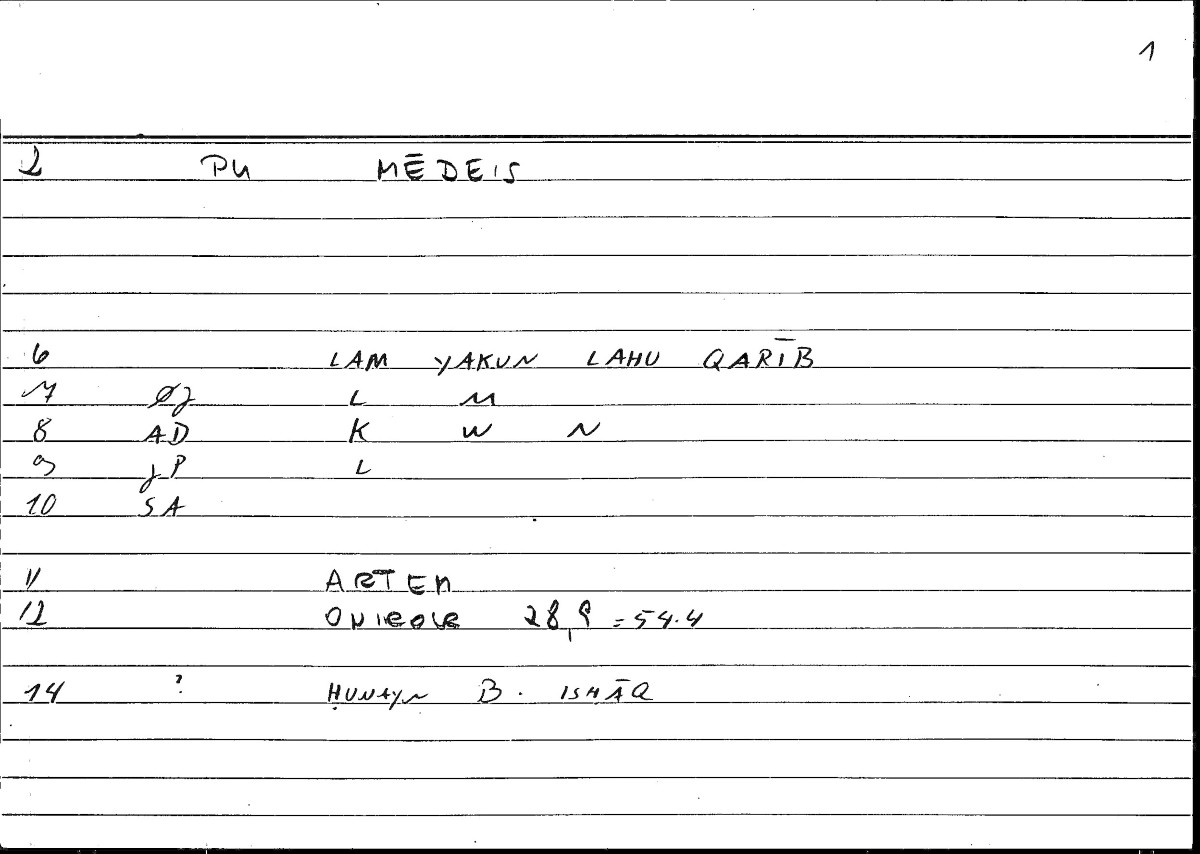 1
2 PU MĒDEIS
6 LAM YAKUN LAHU QARĪB
7 ØJ L M
8 AD K W N
9 JP L
10 SA
11 ARTEM
12 ONIROCR 28,9 = 54.4
14 ? ḤUNAYN B. ISḤĀQ